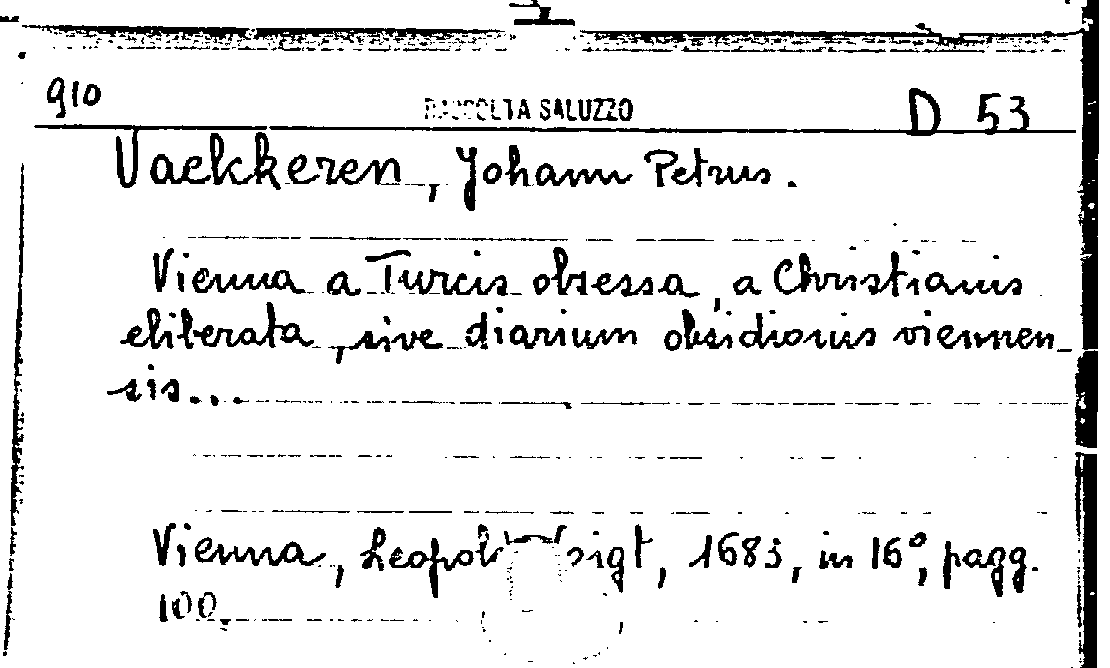 910 RACCOLTA SALUZZO D 53
Vaekkeren, Johann Petrus.
Vienna a Turcis obsessa, a Christianis
eliberata, sive diarium obsidionis viennen-
sis...
Vienna, 1683, in 16°, pagg.
100.